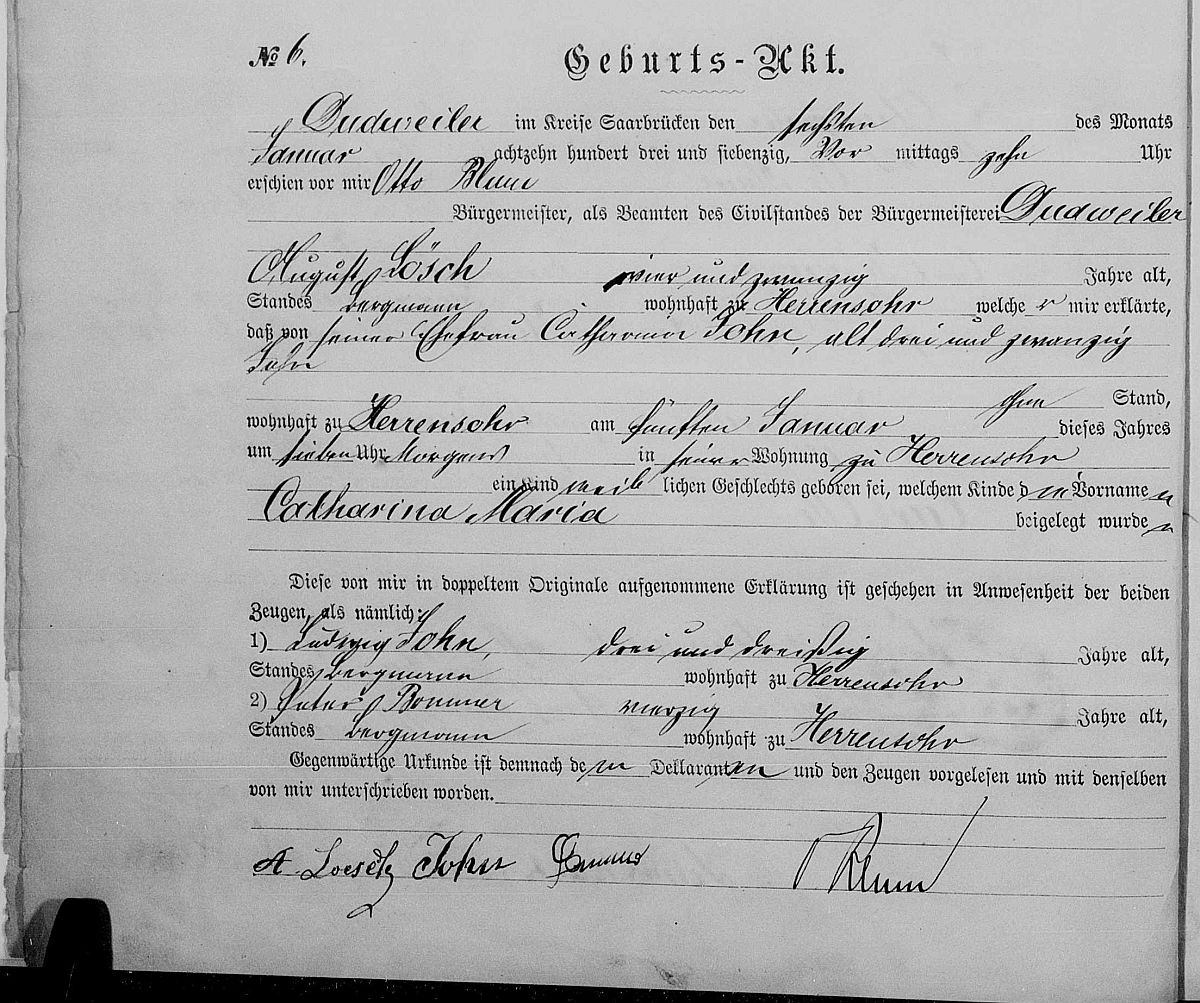 № 6.
Geburts-Akt.
Dudweiler im Kreise Saarbrücken den sechsten des Monats
Januar achtzehn hundert drei und siebenzig, Vor mittags zehn Uhr
erschien vor mir Otto Blum
Bürgermeister, als Beamten des Civilstandes der Bürgermeisterei Dudweiler
August Lösch vier und zwanzig Jahre alt,
Standes Bergmann wohnhaft zu Herrensohr welcher mir erklärte,
daß von seiner Ehefrau Catharina John, alt drei und zwanzig
Jahr
ohne Stand,
wohnhaft zu Herrensohr am fünften Januar dieses Jahres
um sieben Uhr Morgens in seiner Wohnung zu Herrensohr
ein Kind weiblichen Geschlechts geboren sei, welchem Kinde die Vornamen
Catharina Maria beigelegt wurden
Diese von mir in doppeltem Originale aufgenommene Erklärung ist geschehen in Anwesenheit der beiden
Zeugen, als nämlich:
1) Ludwig John, drei und dreißig Jahre alt,
Standes Bergmann wohnhaft zu Herrensohr
2) Peter Bommer vierzig Jahre alt,
Standes Bergmann wohnhaft zu Herrensohr
Gegenwärtige Urkunde ist demnach dem Deklaranten und den Zeugen vorgelesen und mit denselben
von mir unterschrieben worden.
A. Loesch John Blum